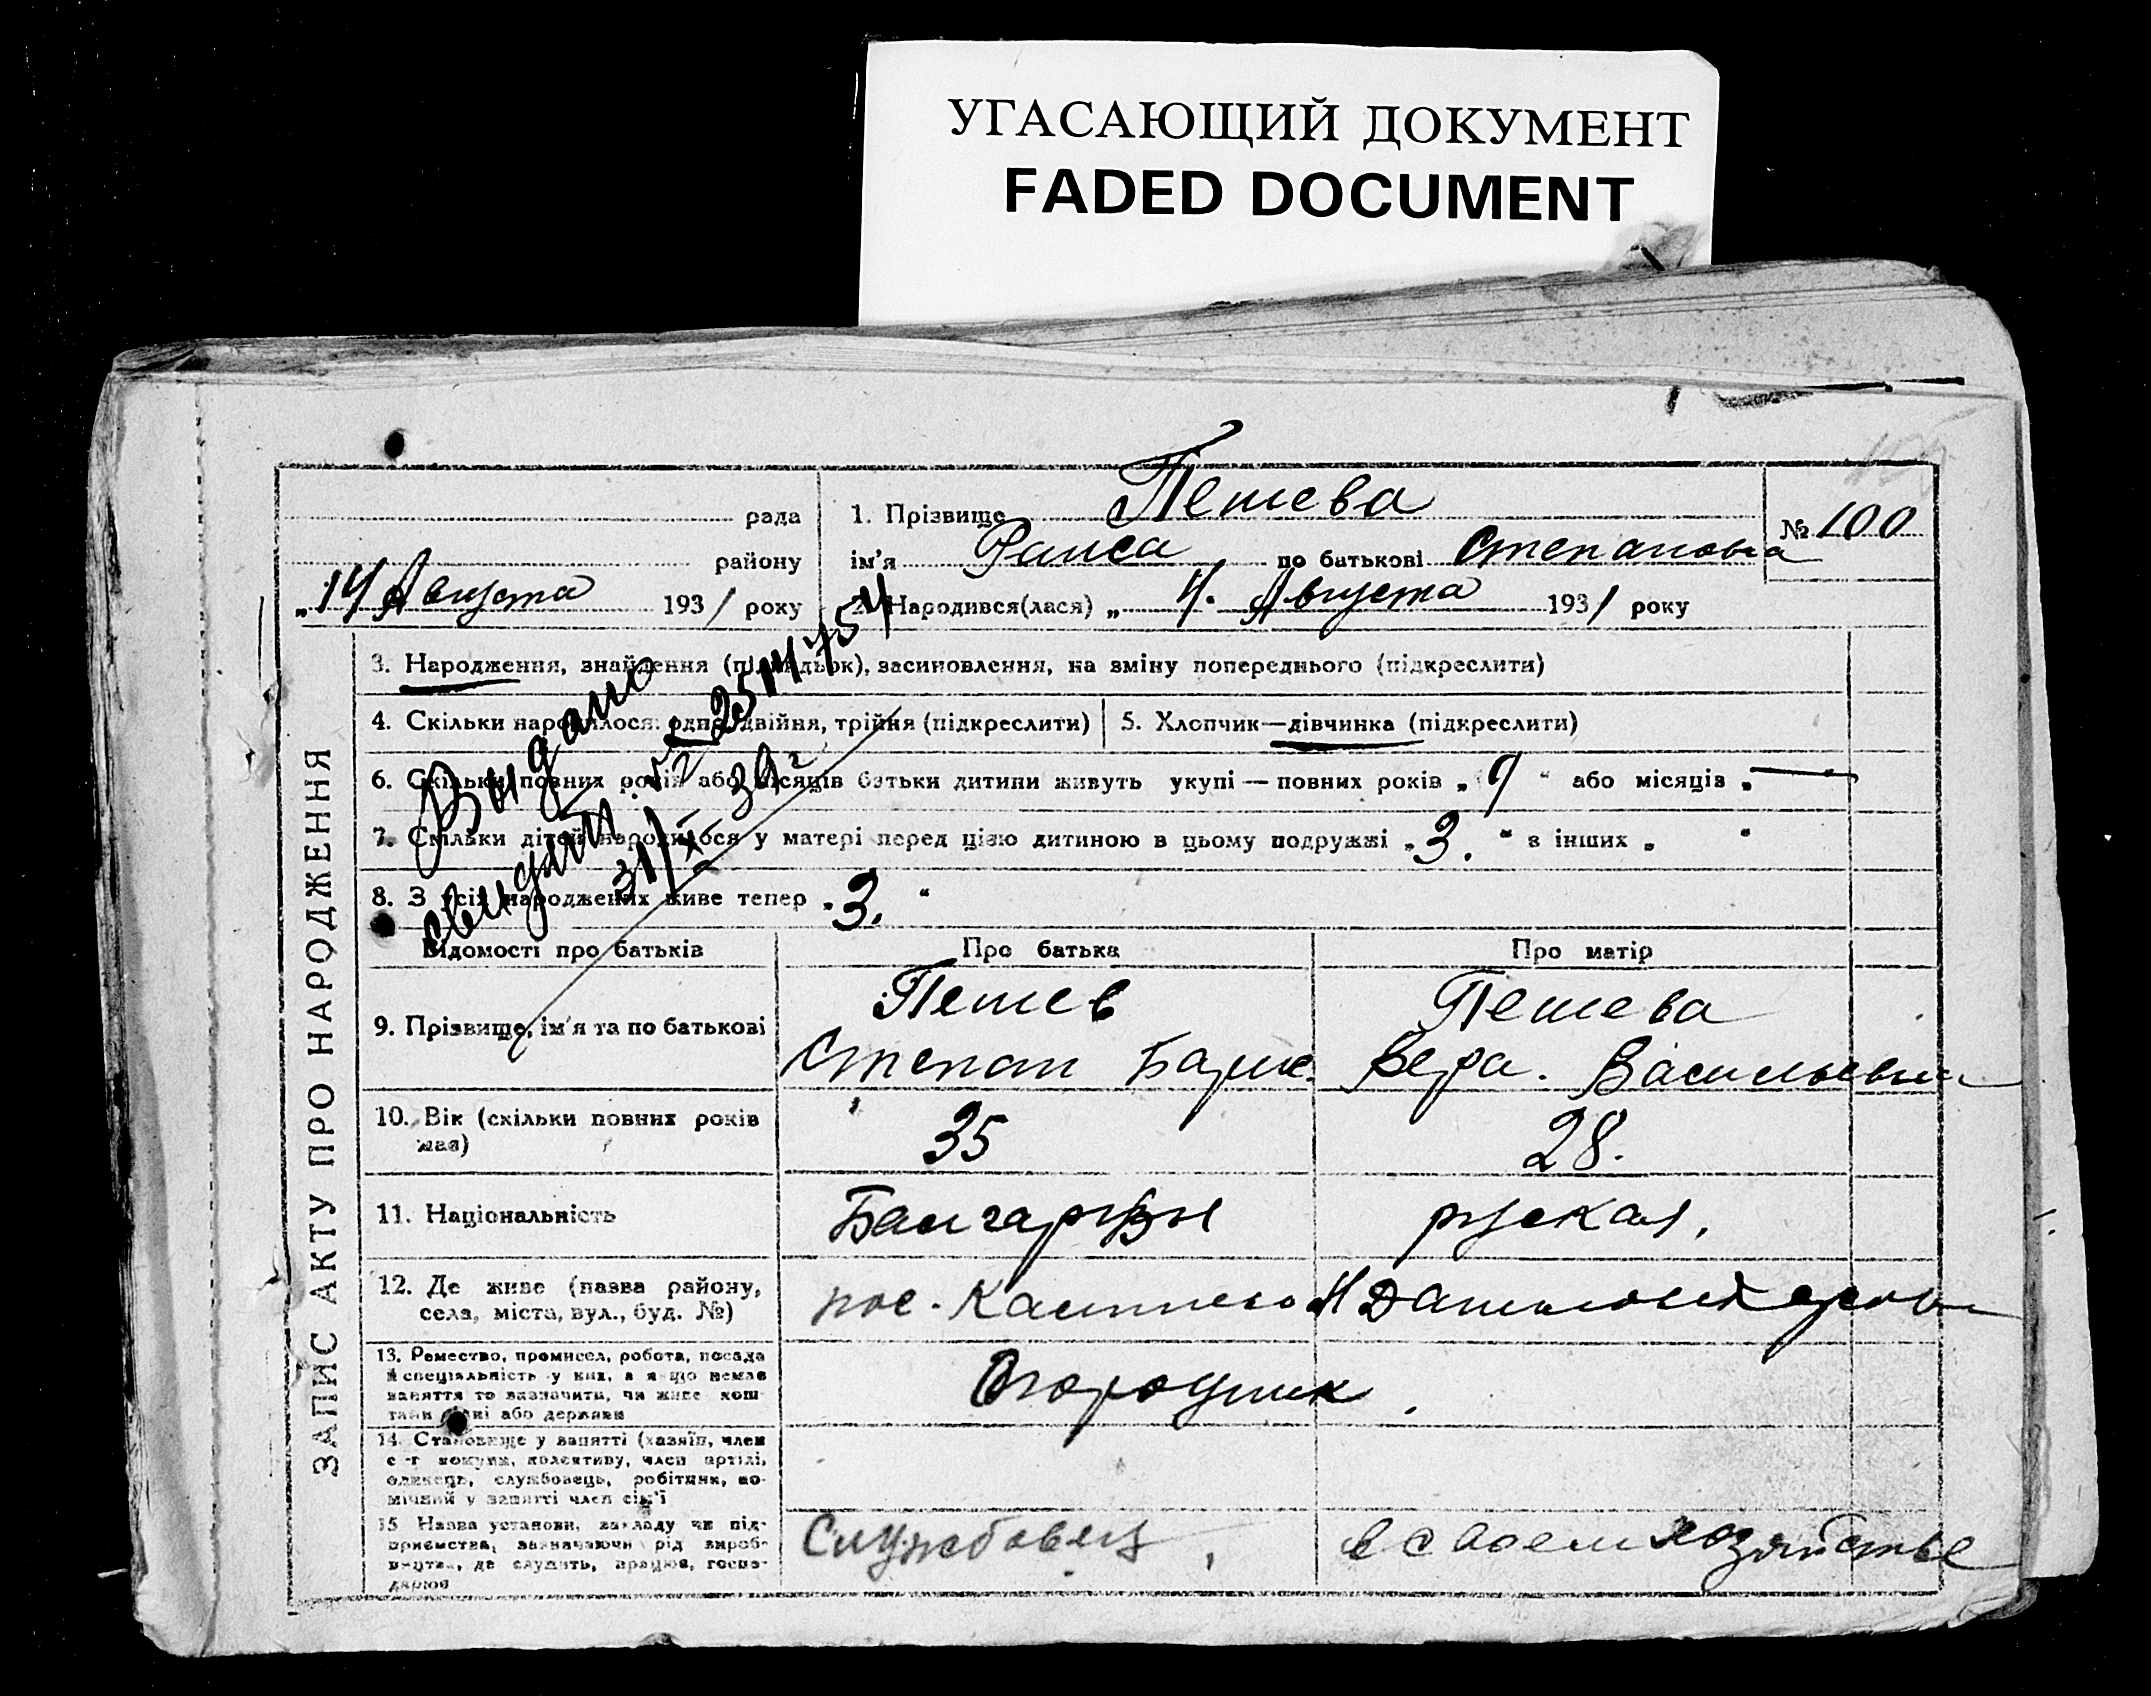 УГАСАЮЩИЙ ДОКУМЕНТ
FADED DOCUMENT
ЗАПИС АКТУ ПРО НАРОДЖЕННЯ
рада
району
„14 Августа 1931 року
1. Прізвище Пешева
ім'я Раиса по батькові Степановна
№ 100
2. Народився(лася) „ 4. Августа 1931 року
3. Народження, знайдення (підкидьок), засиновлення, на зміну попереднього (підкреслити)
4. Скільки народилося: одно, двійня, трійня (підкреслити)
5. Хлопчик—дівчинка (підкреслити)
6. Скільки повних років або місяців батьки дитини живуть укупі — повних років „ 9 “ або місяців „ — “
7. Скільки дітей народилося у матері перед цією дитиною в цьому подружжі „ 3. “ в інших „ “
8. З усіх народжених живе тепер „ 3. “
Выдано
свидет. № 2514754
31/X-39г
Відомості про батьків
Про батька
Про матір
9. Прізвище, ім'я та по батькові
Пешев
Степан
Пешева
Вера. Васильевна
10. Вік (скільки повних років має)
35
28.
11. Національність
руская.
12. Де живе (назва району,
села, міста, вул., буд. №)
пос.
13. Ремество, промисел, робота, посада
й спеціяльність у них, а якщо немає
заняття то зазначити, чи живе кош-
тами рідні або держави
Огородник.
14. Становище у занятті (хазяїн, член
с-г комуни, колективу, член артілі,
одинець, службовець, робітник, по-
мічний у занятті член сім'ї
15 Назва установи, закладу чи під-
приємства, зазначаючи рід вироб-
ництва, де служить, працює, госпо-
дарює
Службовець,
в своем хозяйстве